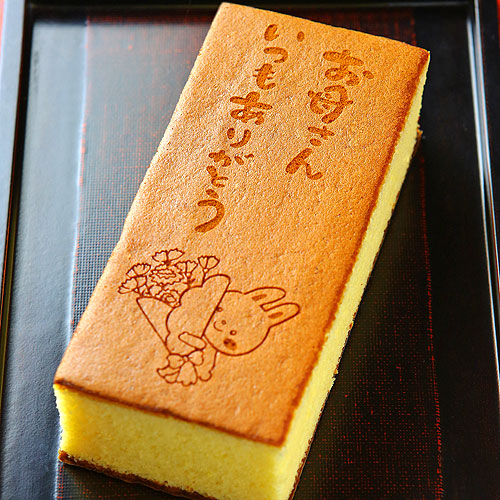 お母さん
いつもありがとう